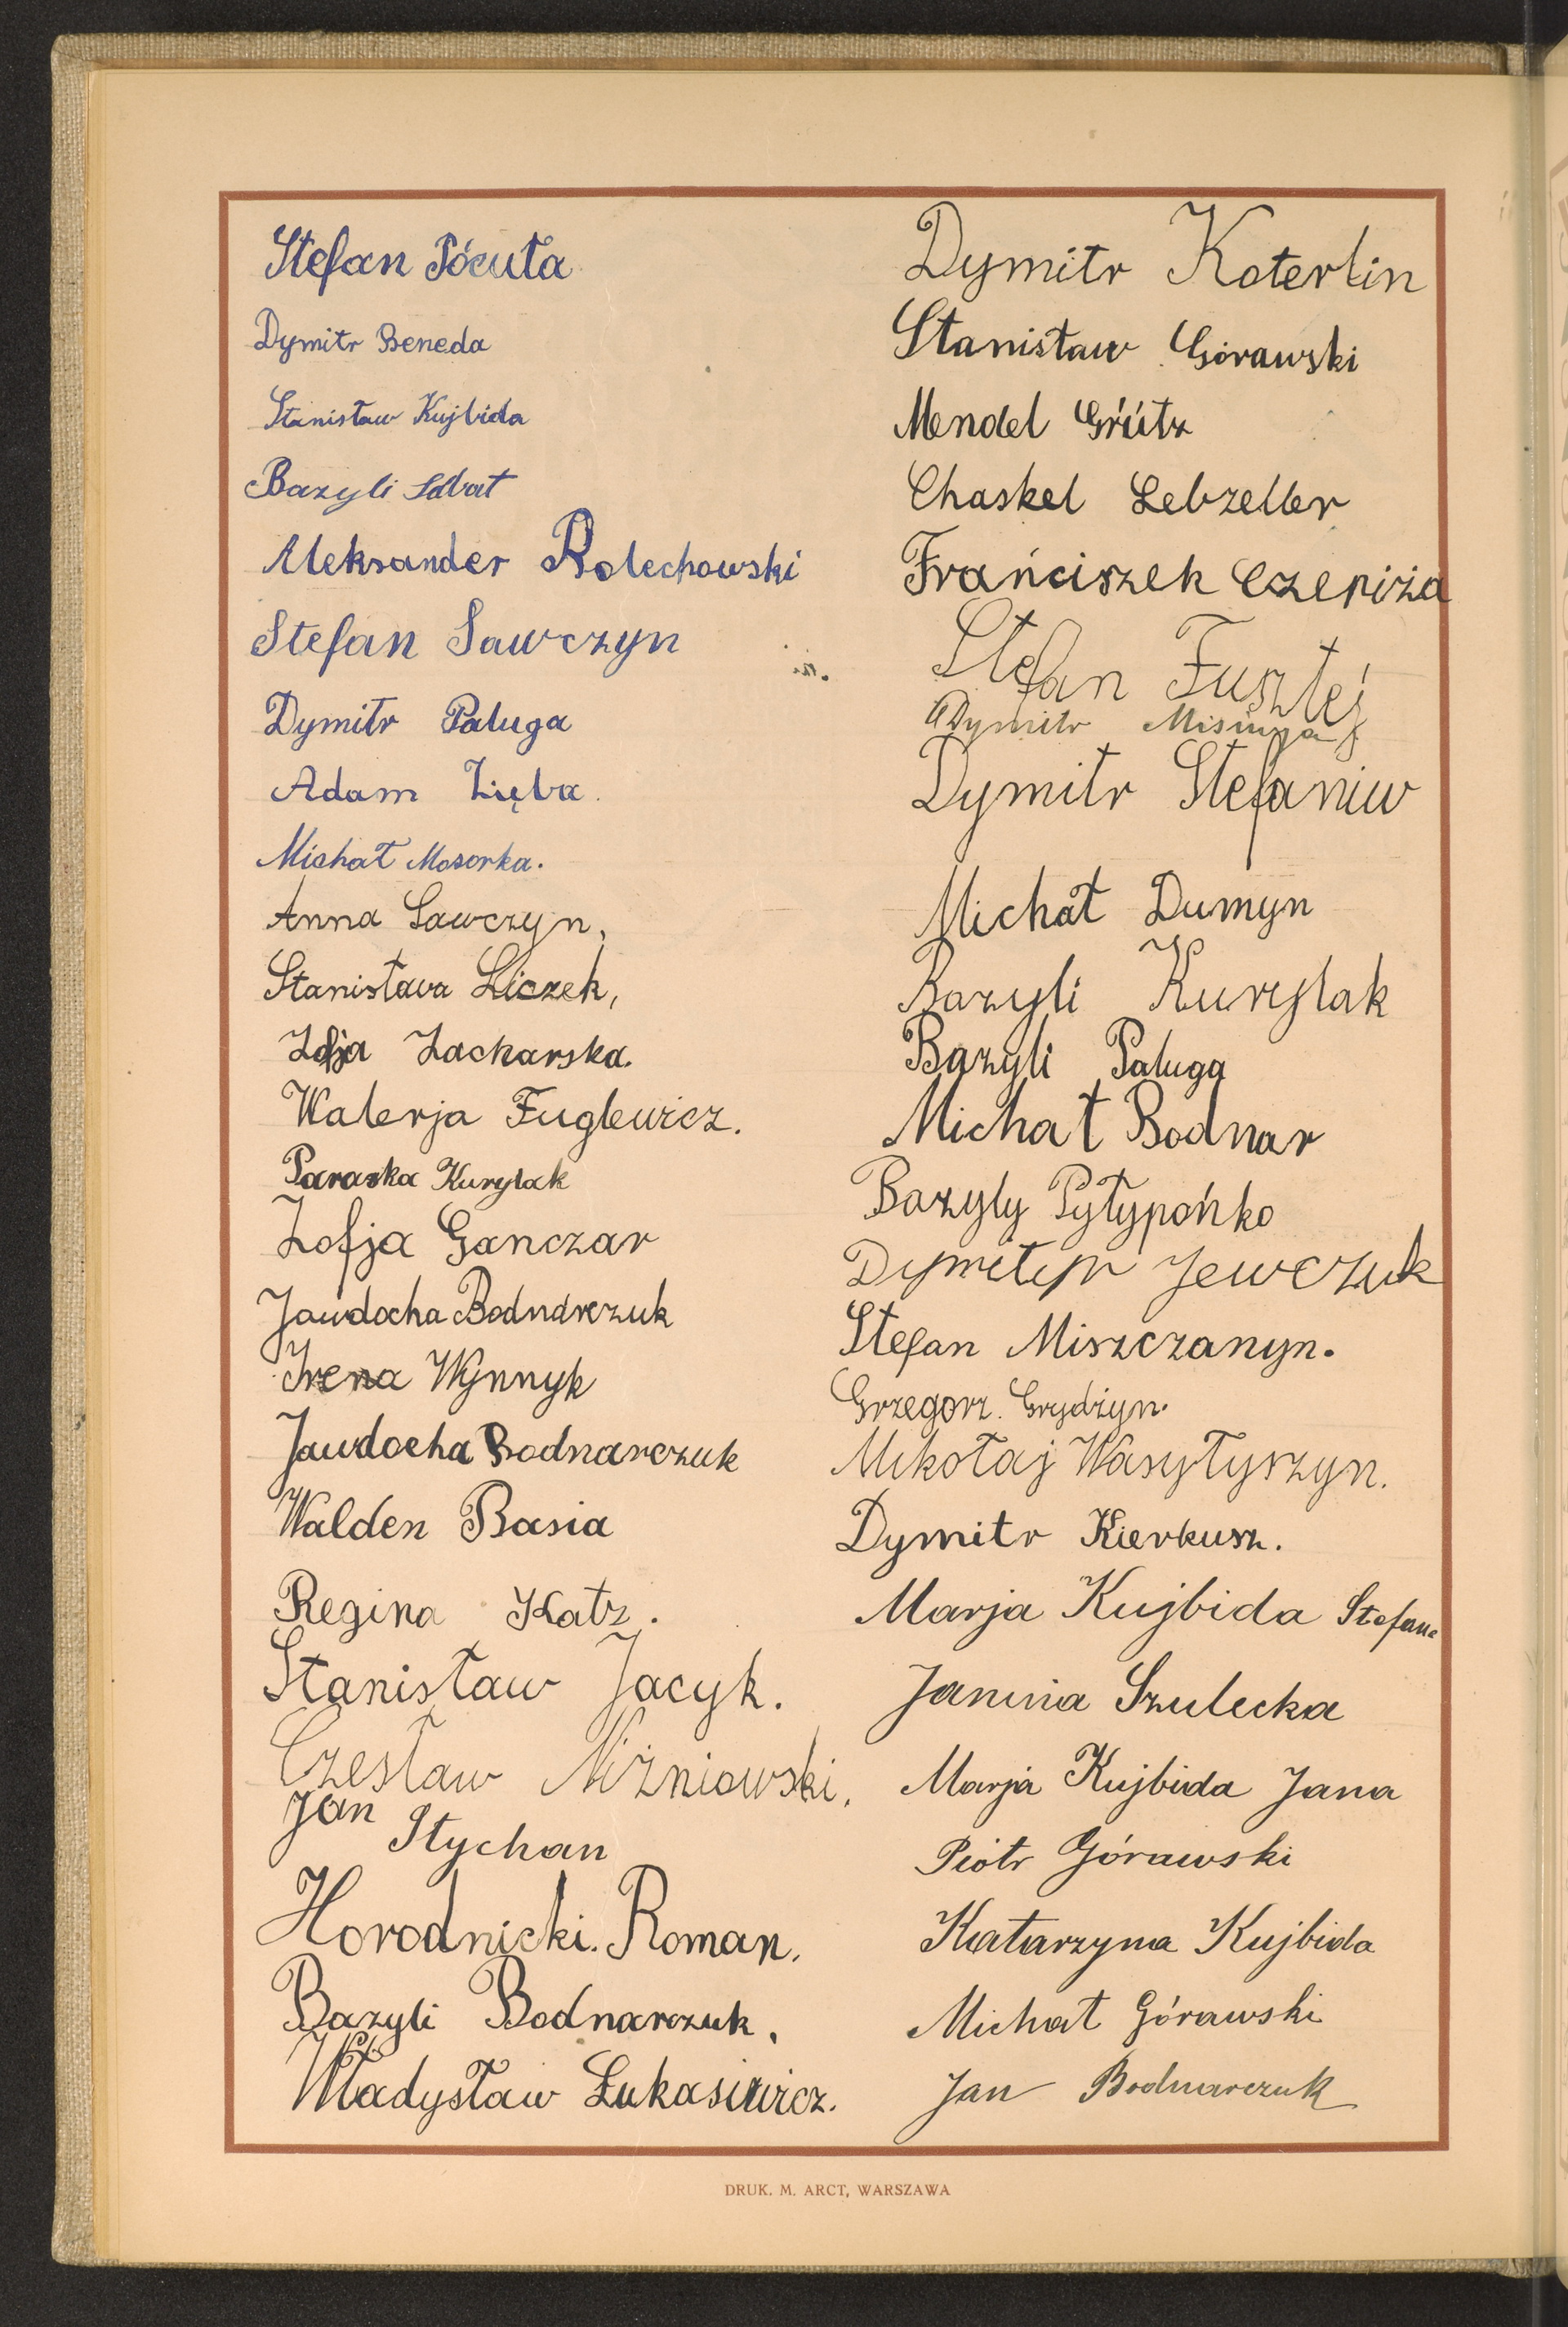 Stefan Pócuta
Dymitr Beneda
Stanisław Kujbida
Bazyli Sabat
Aleksander Bolechowski
Stefan Sawczyn
Dymitr Paluga
Adam Zięba
Michał Mosorka.
Anna Sawczyn,
Stanisława Liczek,
Zofja Zacharska.
Walerja Fuglewicz.
Paraska Kurylak
Zofja Ganczar
Jawdocha Bodnarczuk
Irena Wynnyk
Jawdocha Bodnarczuk
Walden Basia
Regina Katz.
Stanisław Jacyk.
Czesław Niżniowski.
Jan Stychan
Horodnicki. Roman.
Bazyli Bodnarczuk.
Władysław Łukasiewicz.
Dymitr Koterlin
Stanisław Górawski
Mendel Grütz
Chaskel Lebzelter
Frańciszek Czepiża
Stefan Fusztej
Dymitr
Dymitr Stefaniw
Michał Dumyn
Bazyli Kurylak
Bazyli Paluga
Michał Bodnar
Bazyly Pyłypońko
Dymityr Jewczuk
Stefan Miszczanyn.
Grzegorz. Grydżyn.
Mikołaj Wasyłyszyn.
Dymitr Kierkusz.
Marja Kujbida Stefana
Janina Szulecka
Marja Kujbida Jana
Piotr Górawski
Katarzyna Kujbida
Michał Górawski
Jan Bodnarczuk
DRUK. M. ARCT, WARSZAWA